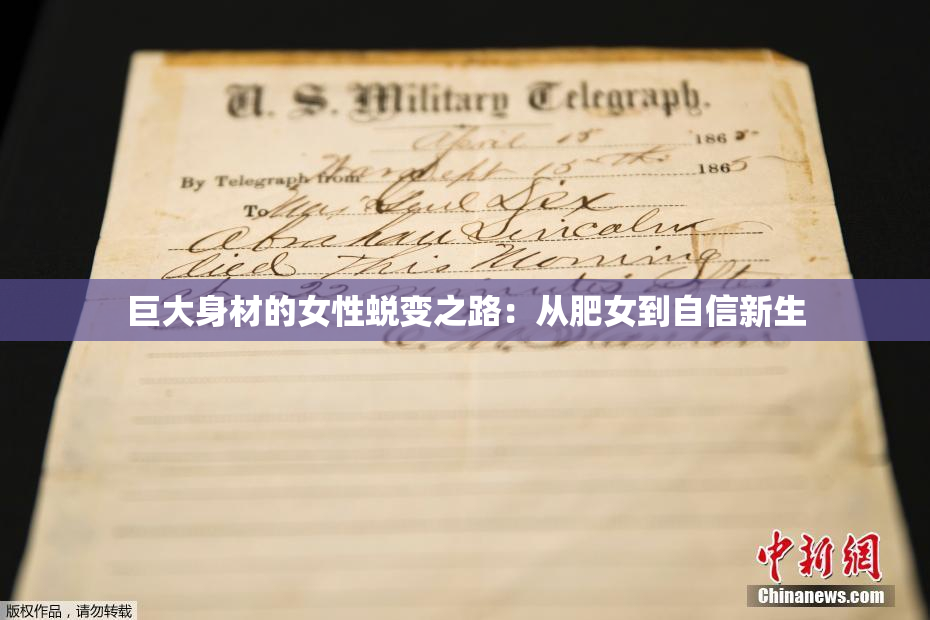 U. S. Military Telegraph.
April 15 1865
By Telegraph from War Dept 15th 1865
To Maj Genl Dix
Abraham Lincoln
died This Morning
at 22 minutes after
巨大身材的女性蜕变之路：从肥女到自信新生
中新網
Chinanews.com
版权作品，请勿转载